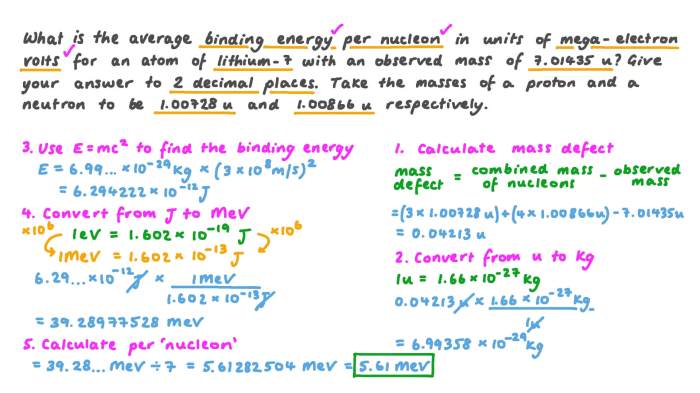 What is the average binding energy per nucleon in units of mega-electron
volts for an atom of lithium-7 with an observed mass of 7.01435 u? Give
your answer to 2 decimal places. Take the masses of a proton and a
neutron to be 1.00728 u and 1.00866 u respectively.
1. Calculate mass defect
mass defect = combined mass of nucleons - observed mass
=(3×1.00728u)+(4×1.00866u)-7.01435u
= 0.04213 u
2. Convert from u to kg
1u = 1.66×10⁻²⁷kg
0.04213u × 1.66×10⁻²⁷kg / 1u
= 6.99358×10⁻²⁹kg
3. Use E=mc² to find the binding energy
E = 6.99...×10⁻²⁹kg × (3×10⁸m/s)²
= 6.294222×10⁻¹²J
4. Convert from J to MeV
×10⁶ 1eV = 1.602×10⁻¹⁹ J ×10⁶
1MeV = 1.602×10⁻¹³ J
6.29...×10⁻¹²J × 1MeV / 1.602×10⁻¹³J
= 39.28977528 MeV
5. Calculate per 'nucleon'
= 39.28... MeV ÷ 7 = 5.61282504 MeV = 5.61 MeV